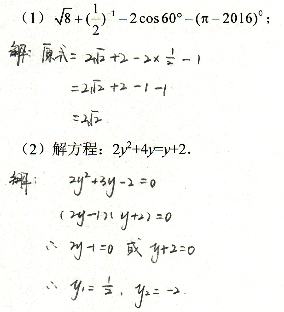 (1) √8+(1/2)⁻¹-2cos60°-(π-2016)⁰;
解: 原式=2√2+2-2×1/2-1
=2√2+2-1-1
=2√2
(2) 解方程: 2y²+4y=y+2.
解: 2y²+3y-2=0
(2y-1)(y+2)=0
∴ 2y-1=0 或 y+2=0
∴ y₁=1/2, y₂=-2